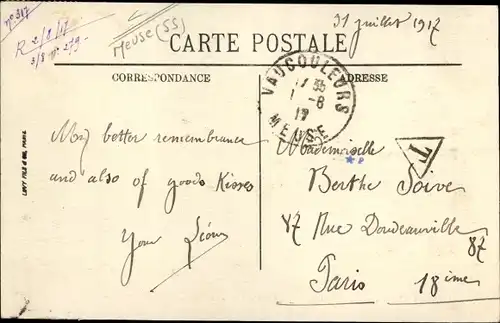 n° 317
R 2/8/17
3/8 n° 279-
Meuse (SS)
31 juillet 1917
CARTE POSTALE
CORRESPONDANCE
ADRESSE
VAUCOULEURS
1-8
17
MEUSE
My better remembrance
and also of goods Kisses
Your Léon
Mademoiselle
T
Berthe Soive
87 Rue Doudeauville
87
Paris 18ième
LEVY FILS & Cie, PARIS